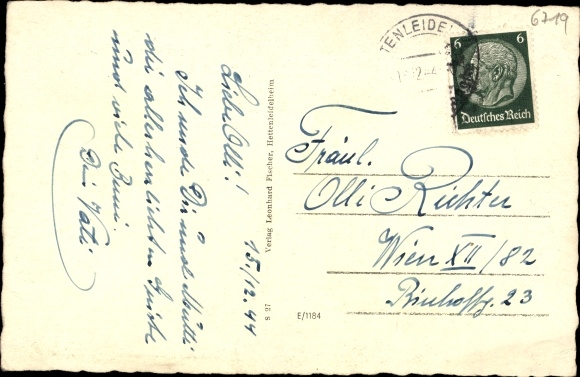 15./12.44
Liebe Olli!
Ich sende Dir und Mutti
die allerherzlichsten Grüße
und viele Bussi.
Dein Vati
Verlag Leonhard Fischer, Hettenleidelheim
S 27
E/1184
TENLEIDE
6719
6 6
Deutsches Reich
Fräul.
Olli Richter
Wien XII/82
23